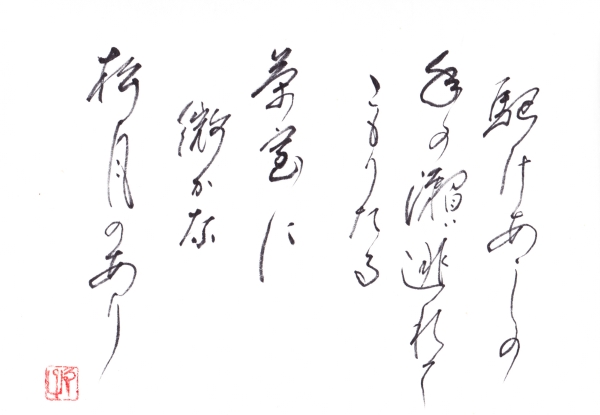 駈けあしの
年の瀬逃れて
こもりたる
茶室に
微かな
松月のあり